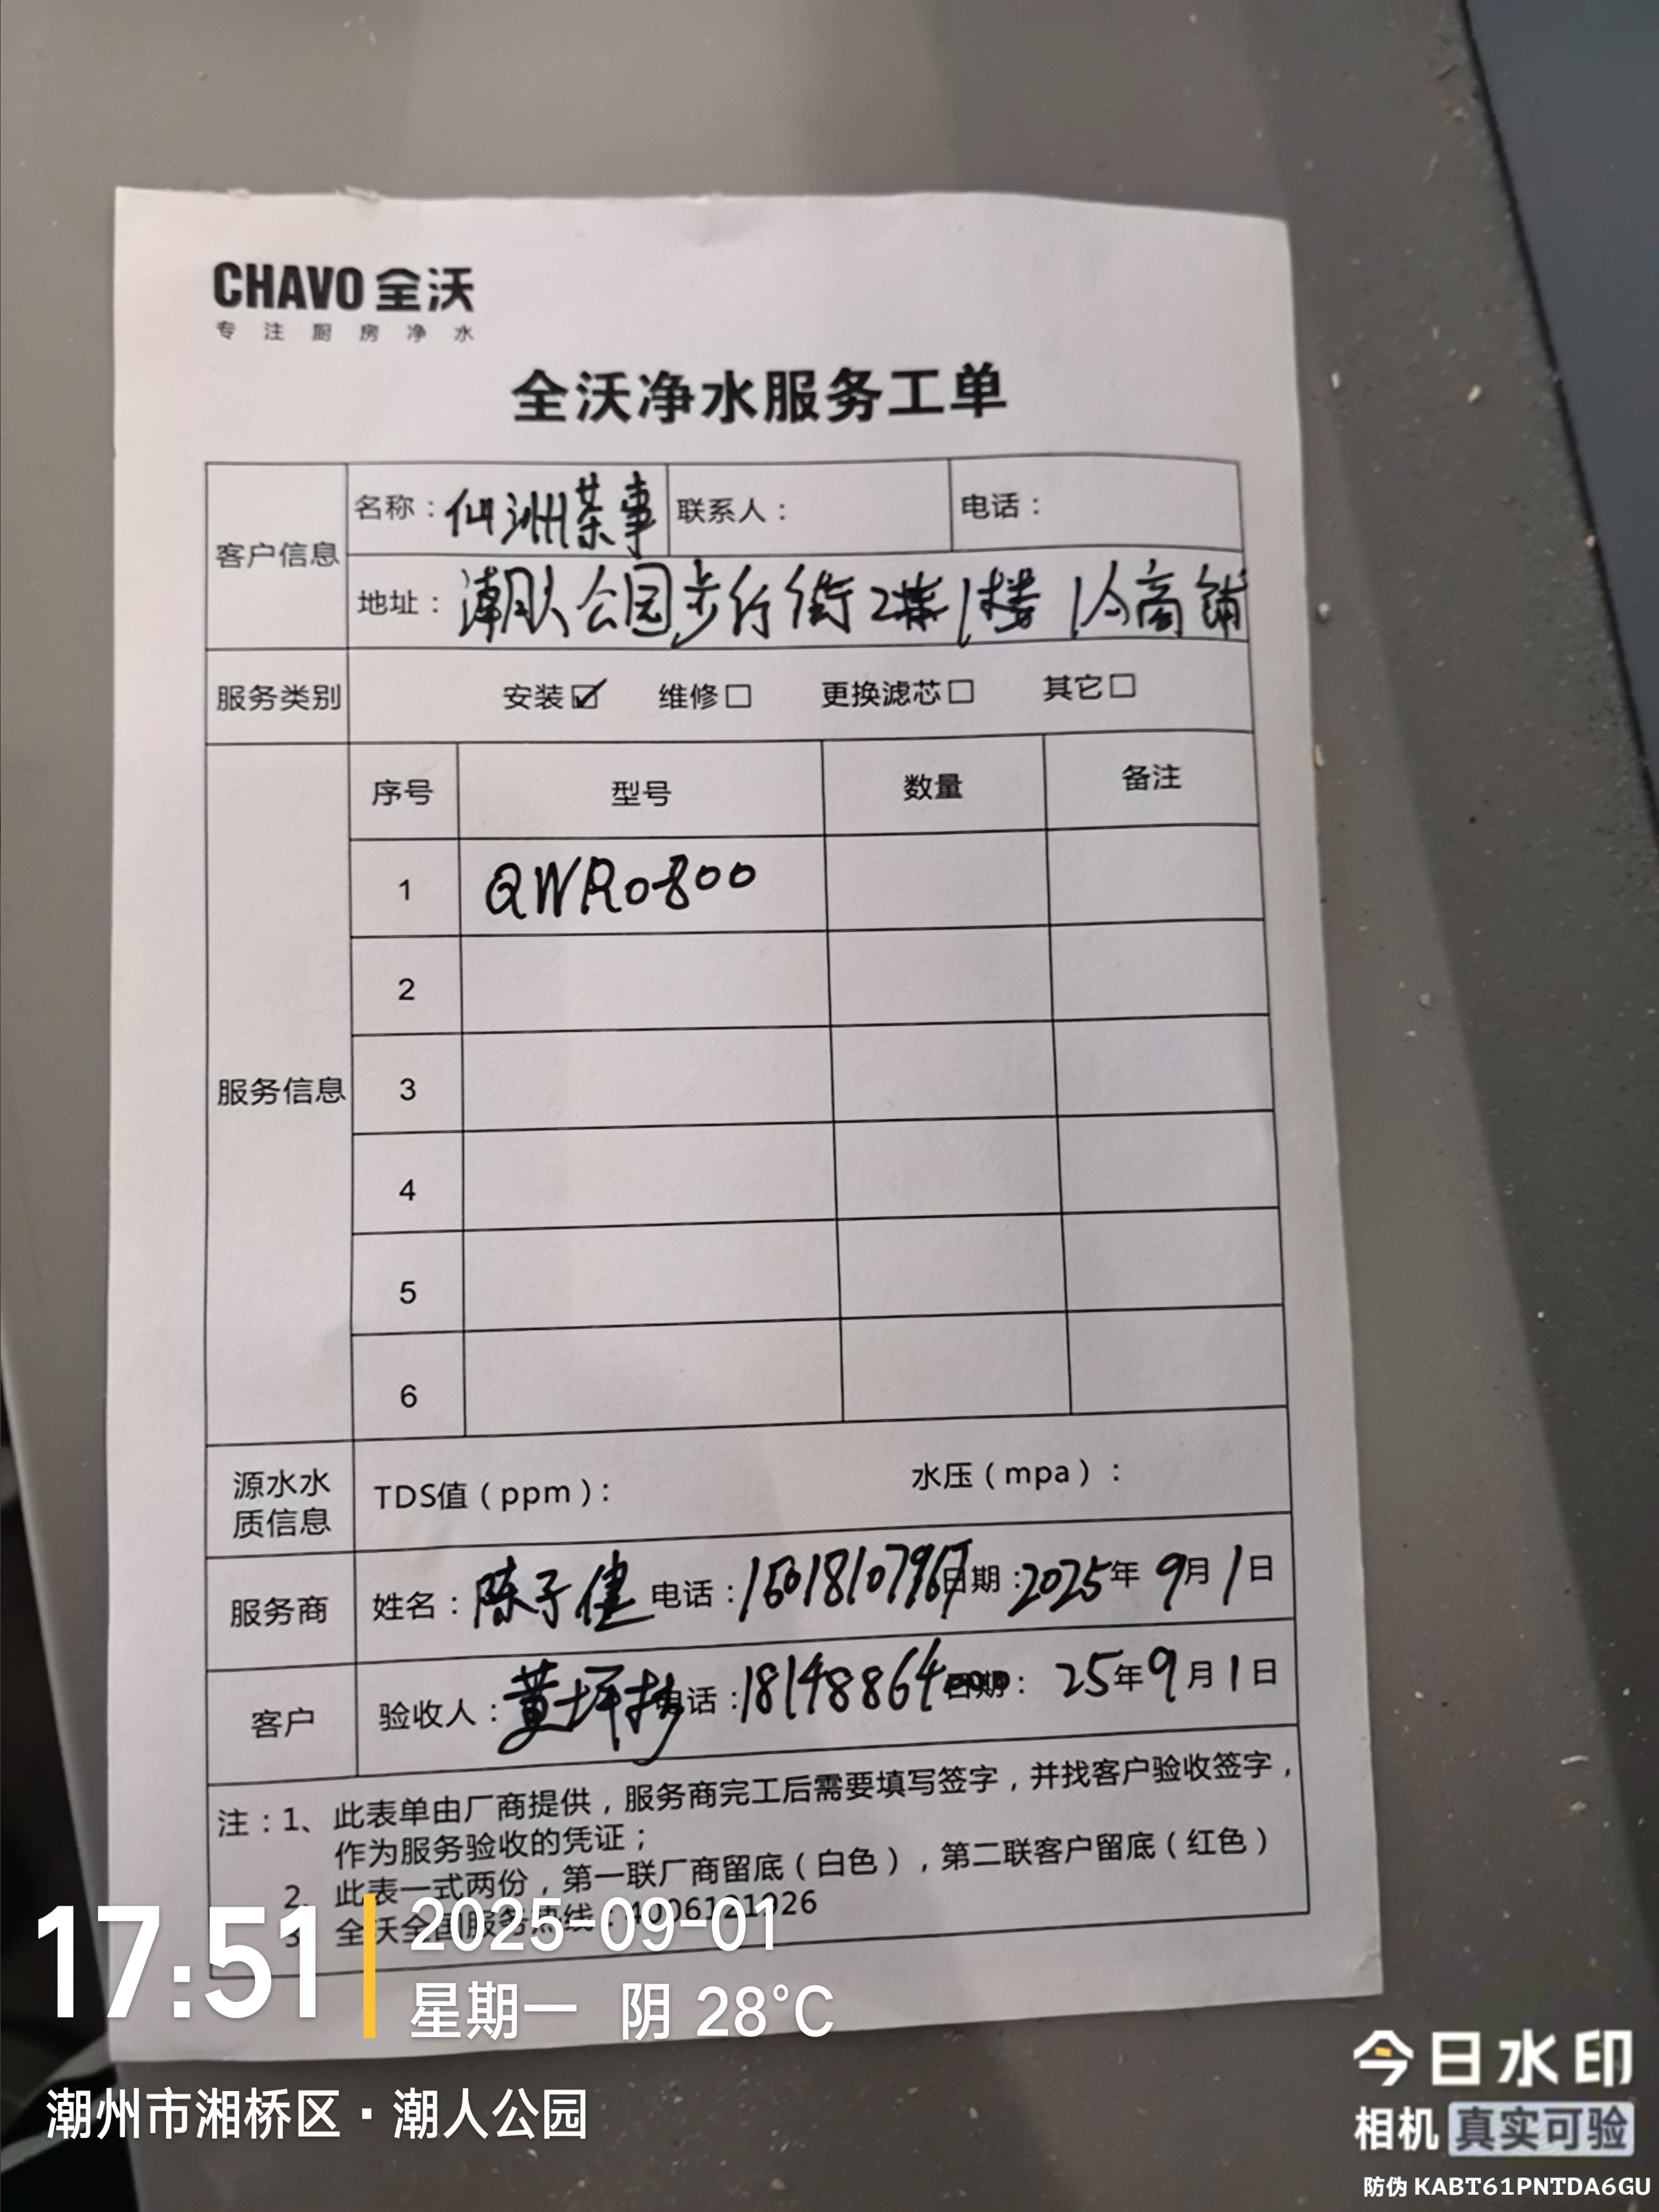 CHAVO 全沃
专注厨房净水
全沃净水服务工单
客户信息
名称：仙洲茶事 联系人： 电话：
地址：潮人公园步行街2栋1楼1人商铺
服务类别 安装☑ 维修☐ 更换滤芯☐ 其它☐
服务信息
序号 型号 数量 备注
1 QWR0800
2
3
4
5
6
源水水质信息 TDS值（ppm）： 水压（mpa）：
服务商 姓名：陈子健 电话：15018107967 日期：2025年9月1日
客户 验收人：黄坪 电话：18148864000 日期：25年9月1日
注：1、此表单由厂商提供，服务商完工后需要填写签字，并找客户验收签字，
作为服务验收的凭证；
2、此表一式两份，第一联厂商留底（白色），第二联客户留底（红色）
3 全沃全国服务热线：4006121926
17:51
2025-09-01
星期一 阴 28°C
潮州市湘桥区·潮人公园
今日水印
相机 真实可验
防伪 KABT61PNTDA6GU